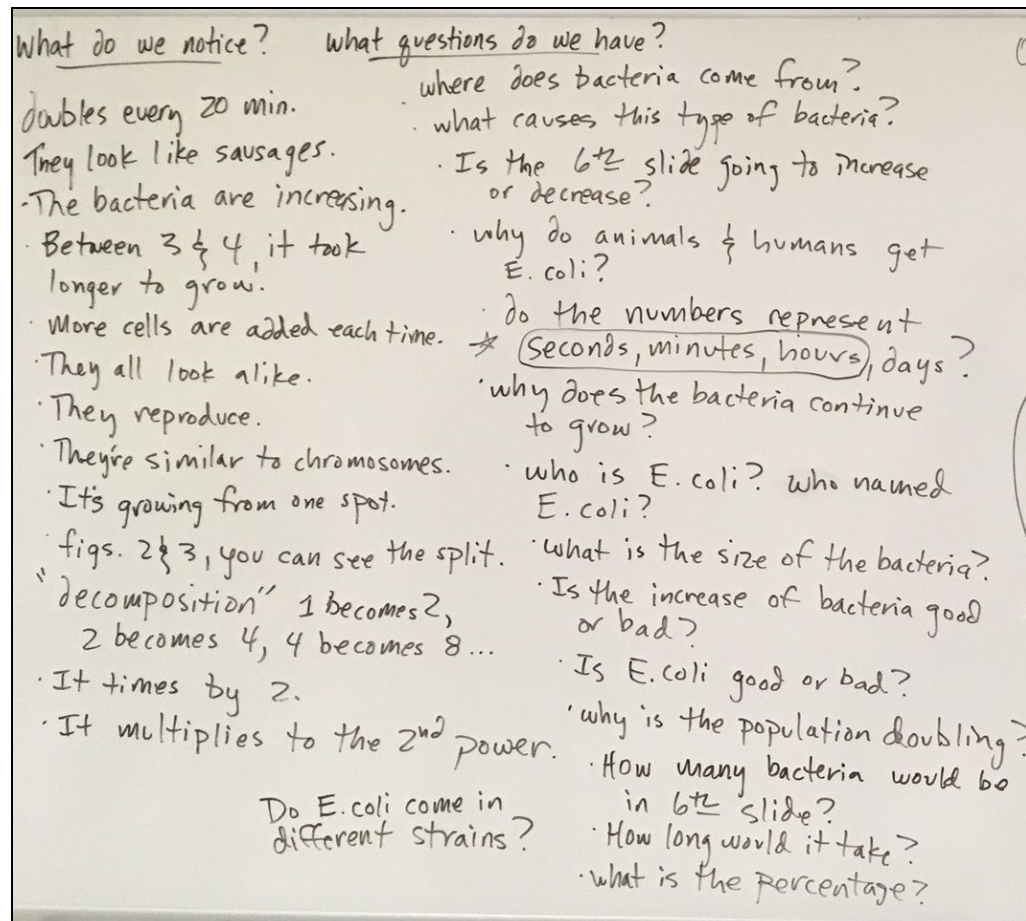 What do we notice?
doubles every 20 min.
They look like sausages.
·The bacteria are increasing.
· Between 3 & 4, it took
longer to grow.
· More cells are added each time.
·They all look alike.
·They reproduce.
·They're similar to chromosomes.
·It's growing from one spot.
figs. 2 & 3, you can see the split.
"decomposition" 1 becomes 2,
2 becomes 4, 4 becomes 8...
·It times by 2.
·It multiplies to the 2nd power.
What questions do we have?
· where does bacteria come from?
· what causes this type of bacteria?
· Is the 6th slide going to increase
or decrease?
· why do animals & humans get
E. coli?
· do the numbers represent
☆ seconds, minutes, hours, days?
·why does the bacteria continue
to grow?
· who is E. coli? who named
E. coli?
·what is the size of the bacteria?
·Is the increase of bacteria good
or bad?
·Is E. coli good or bad?
·why is the population doubling?
·How many bacteria would be
in 6th slide?
·How long would it take?
·what is the percentage?
Do E. coli come in
different strains?